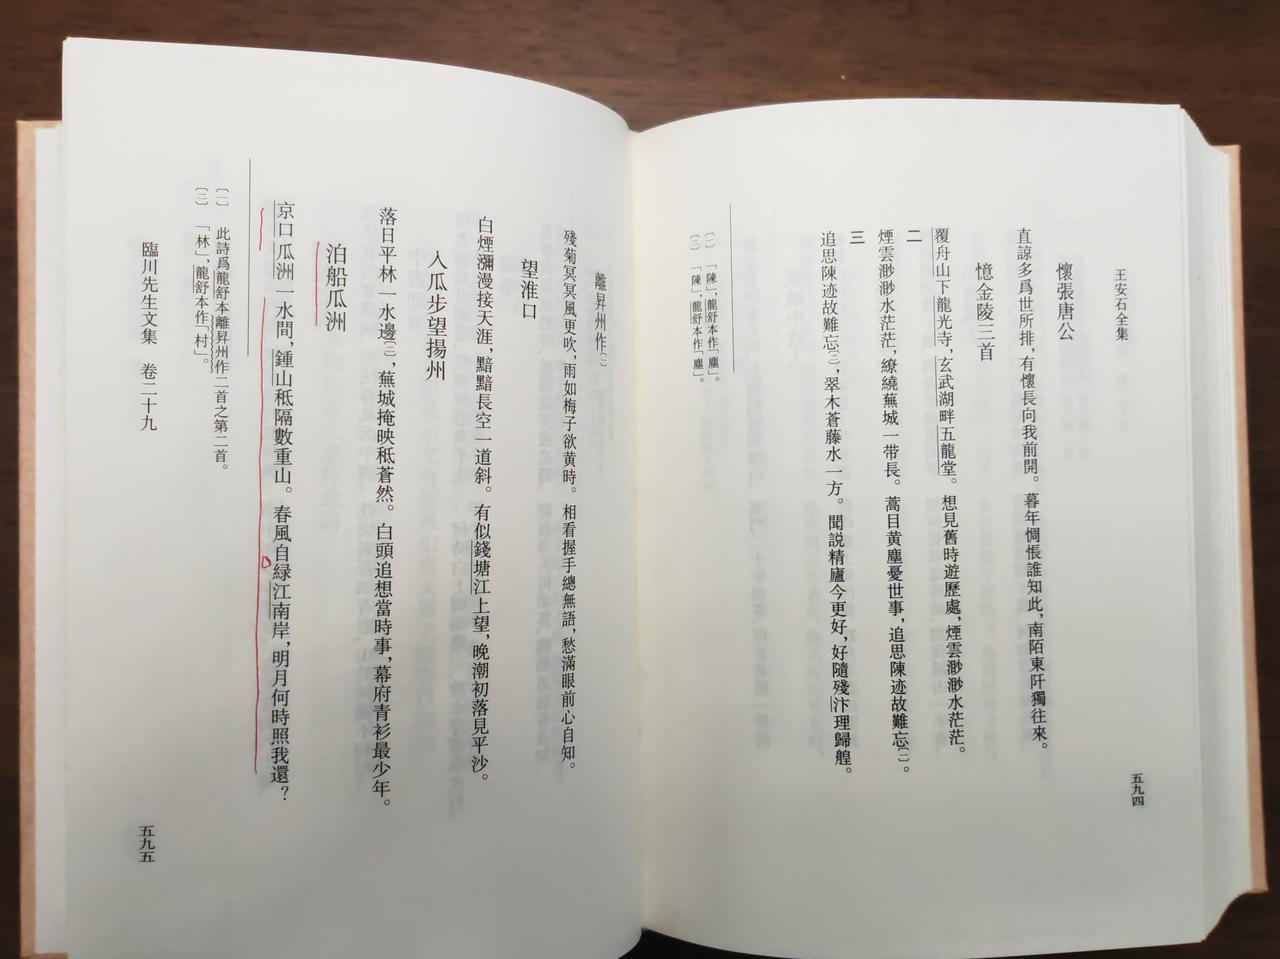 王安石全集
五九四
懷張唐公
直諒多爲世所排，有懷長向我前開。暮年惆悵誰知此，南陌東阡獨往來。
憶金陵三首
覆舟山下龍光寺，玄武湖畔五龍堂。想見舊時遊歷處，煙雲渺渺水茫茫。
二
煙雲渺渺水茫茫，繚繞蕪城一带長。蒿目黄塵憂世事，追思陳迹故難忘〔一〕。
三
追思陳迹故難忘〔二〕，翠木蒼藤水一方。聞説精廬今更好，好隨殘汴理歸艎。
〔一〕「陳」，龍舒本作「塵」。
〔二〕「陳」，龍舒本作「塵」。
離昇州作〔一〕
殘菊冥冥風更吹，雨如梅子欲黄時。相看握手總無語，愁滿眼前心自知。
望淮口
白煙瀰漫接天涯，黯黯長空一道斜。有似錢塘江上望，晚潮初落見平沙。
入瓜步望揚州
落日平林一水邊〔二〕，蕪城掩映秖蒼然。白頭追想當時事，幕府青衫最少年。
泊船瓜洲
京口瓜洲一水間，鍾山秖隔數重山。春風自緑江南岸，明月何時照我還？
〔一〕此詩爲龍舒本離昇州作二首之第二首。
〔二〕「林」，龍舒本作「村」。
臨川先生文集　卷二十九
五九五